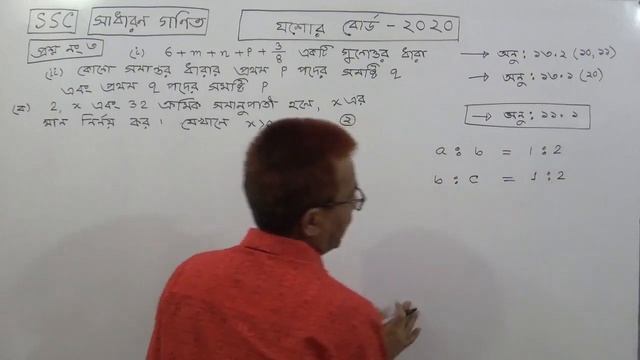 SSC সাধারন গনিত যশোর বোর্ড - ২০২০
প্রশ্ন নং ৩ (i) 6 + m + n + p + 3/8 একটি গুনোত্তর ধারা → অনু: ১৩.২ (২০, ২১)
(ii) কোনো সমান্তর ধারার প্রথম p পদের সমষ্টি q → অনু: ১৩.১ (২০)
এবং প্রথম q পদের সমষ্টি p
(ক) 2, x এবং 32 ক্রমিক সমানুপাতী হলে, x এর
মান নির্নয় কর। যেখানে x > ২ → অনু: ১১.১
a : b = 1 : 2
b : c = 1 : 2